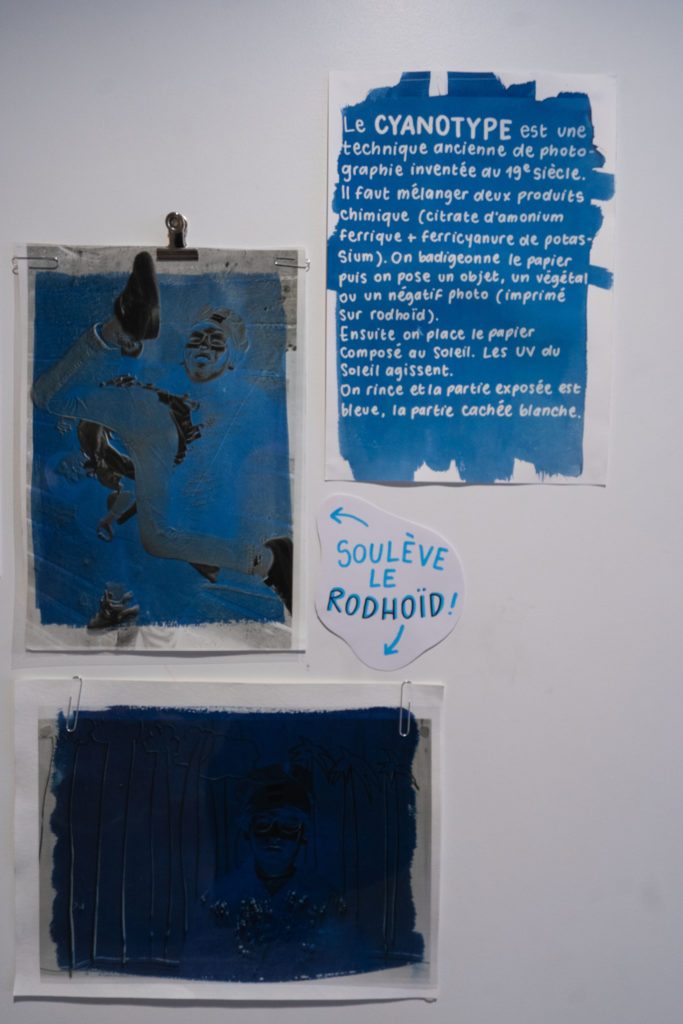 Le CYANOTYPE est une
technique ancienne de photo-
graphie inventée au 19e siècle.
Il faut mélanger deux produits
chimique (citrate d'amonium
ferrique + ferricyanure de potas-
sium). On badigeonne le papier
puis on pose un objet, un végétal
ou un négatif photo (imprimé
sur rodhoïd).
Ensuite on place le papier
composé au Soleil. Les UV du
Soleil agissent.
On rince et la partie exposée est
bleue, la partie cachée blanche.
SOULÈVE
LE
RODHOÏD!